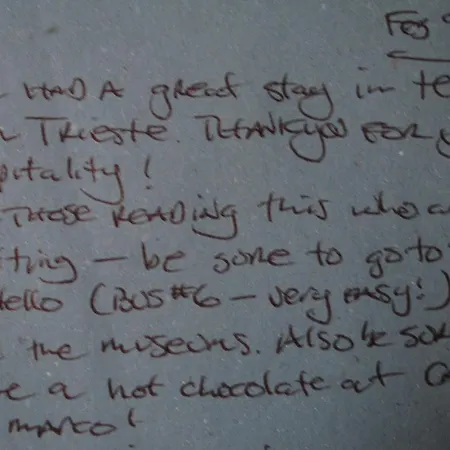 Feb
HAD A great stay in te
Trieste. THANKYOU FOR y
pitality!
THOSE READING this who a
iting - be sure to go to
tello (BUS #6 - very easy!)
the museums. Also be sur
e a hot chocolate at
marco!